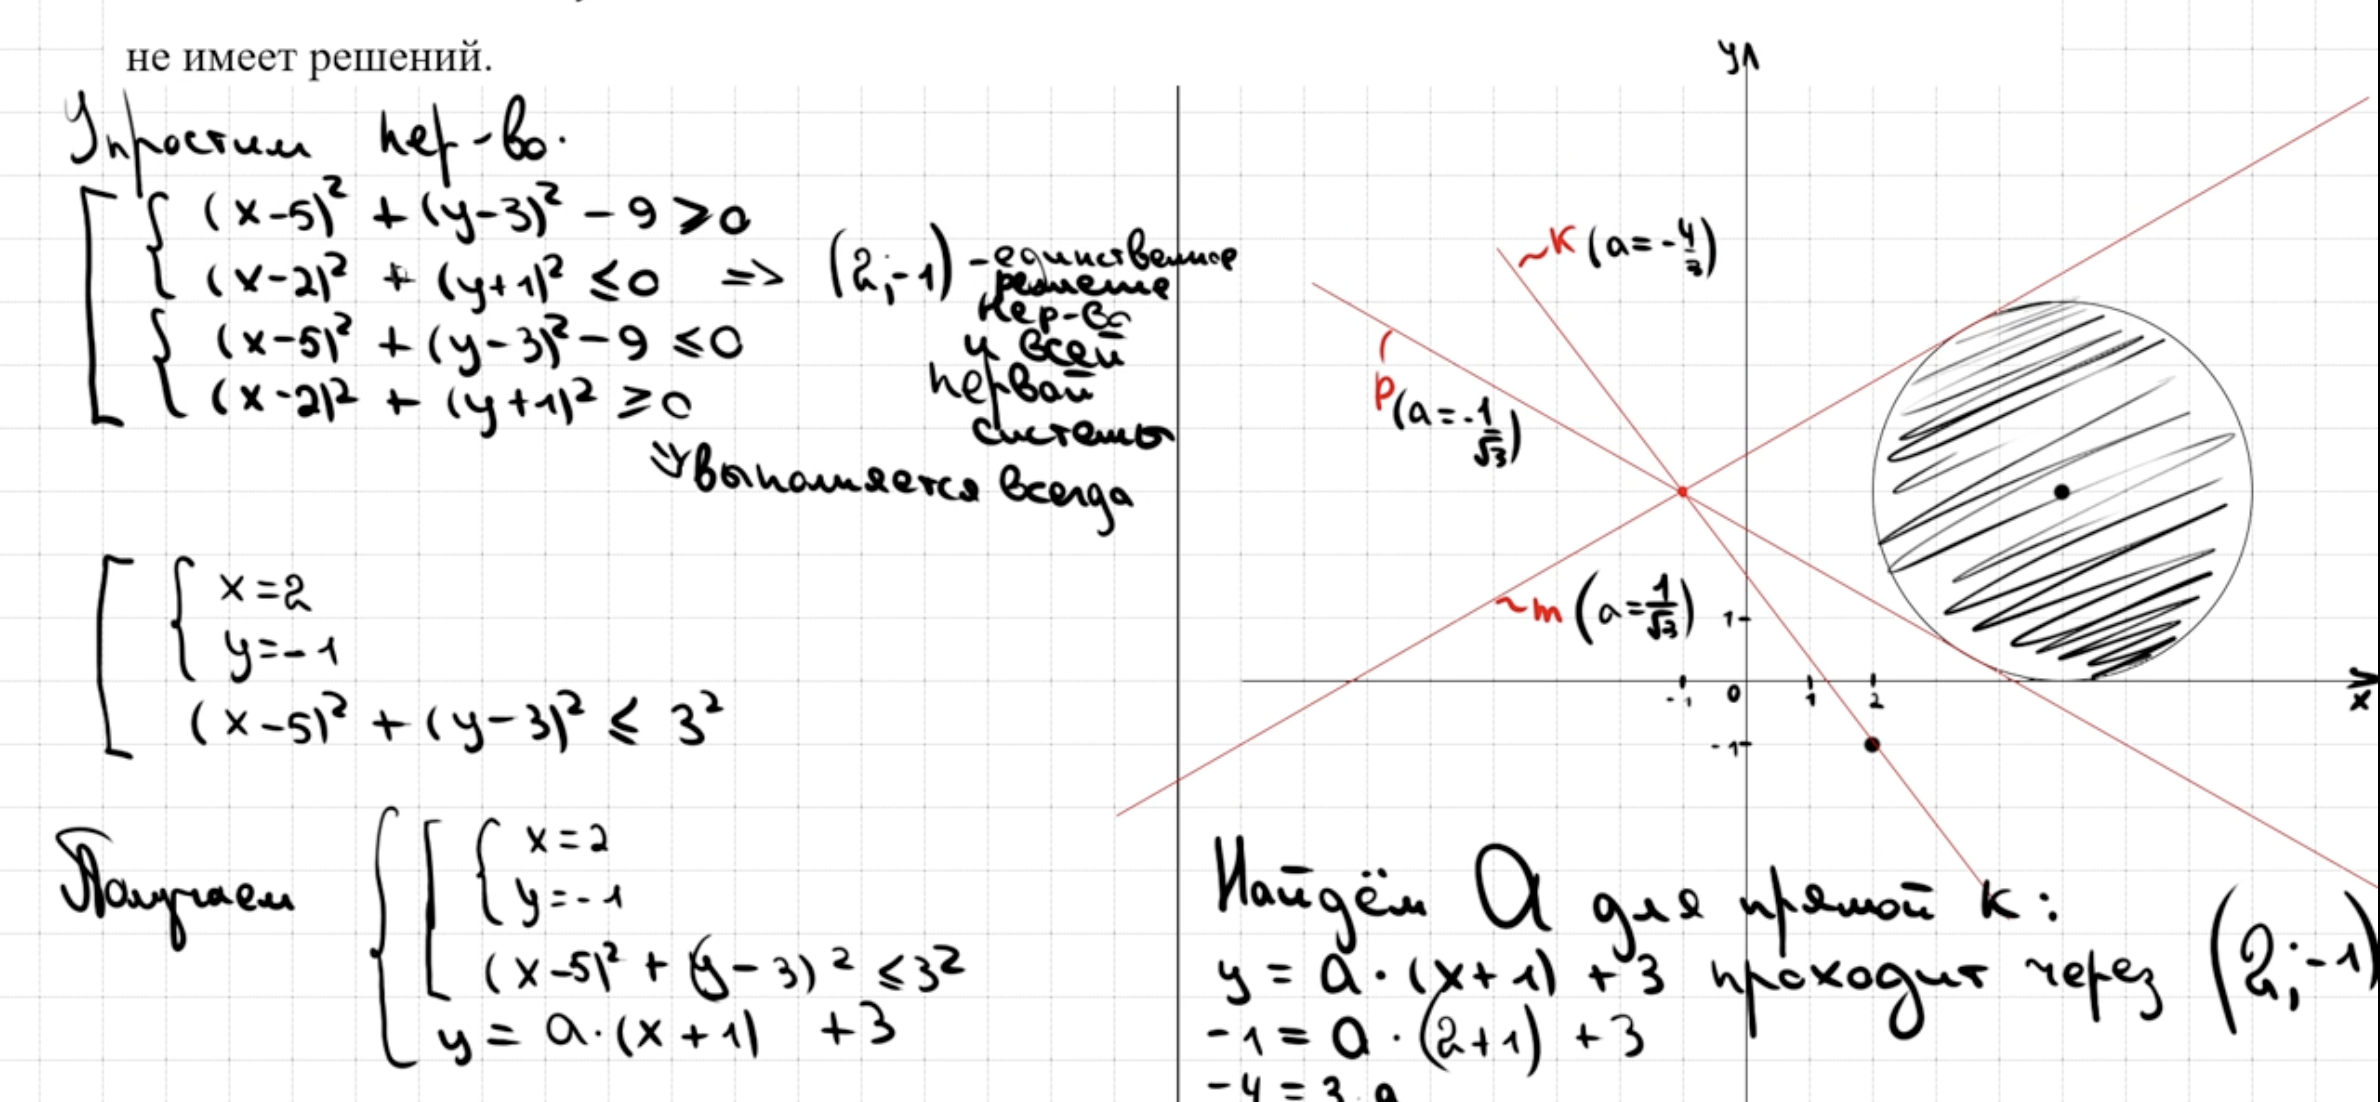 не имеет решений.
Упростим нер-во.
(x-5)² + (y-3)² - 9 ≥ 0
(x-2)² + (y+1)² ≤ 0 => (2;-1) - единственное
решение
нер-ва
и всей
первой
системы
(x-5)² + (y-3)² - 9 ≤ 0
(x-2)² + (y+1)² ≥ 0
⇒ выполняется всегда
x=2
y=-1
(x-5)² + (y-3)² ≤ 3²
Получаем
x=2
y=-1
(x-5)² + (y-3)² ≤ 3²
y = a·(x+1) +3
y
K (a=-4/3)
p (a=-1/√3)
m (a=1/√3)
1
-1 0 1 2 x
-1
Найдём a для прямой K:
y = a·(x+1) +3 проходит через (2;-1)
-1 = a·(2+1) +3
-4 = 3·a